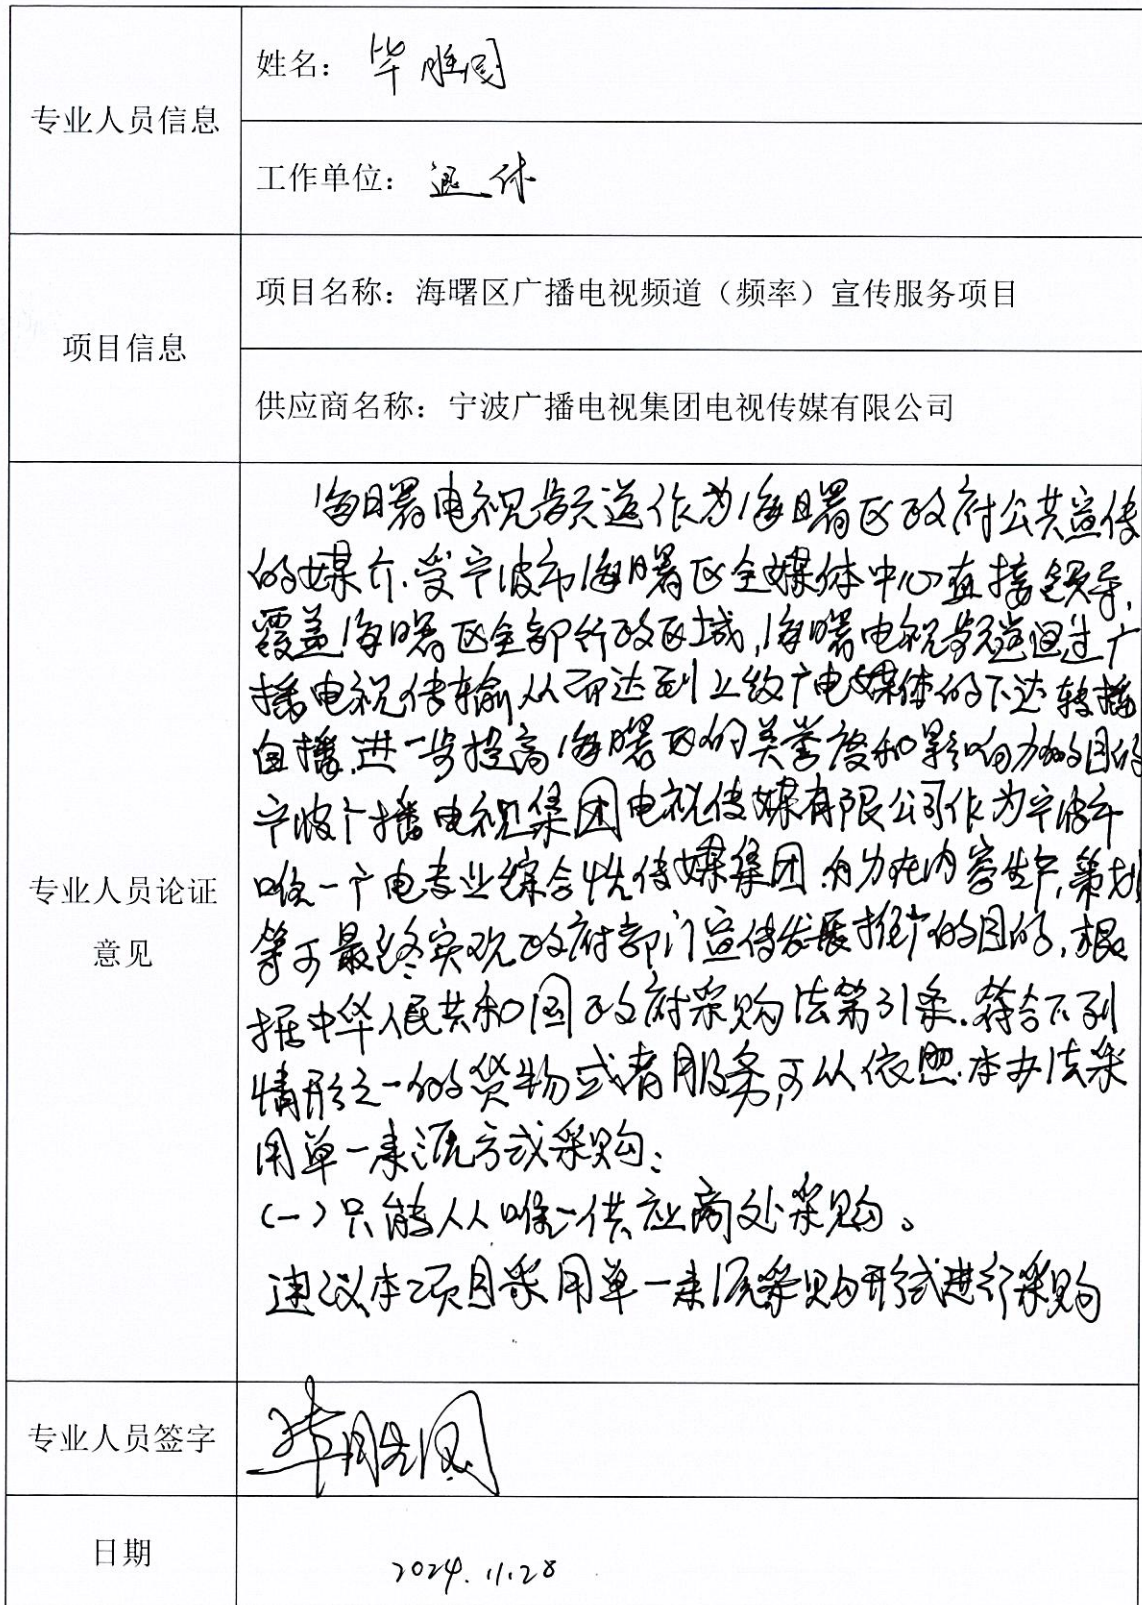 专业人员信息
姓名：毕胜国
工作单位：退休
项目信息
项目名称：海曙区广播电视频道（频率）宣传服务项目
供应商名称：宁波广播电视集团电视传媒有限公司
专业人员论证
意见
海曙电视频道作为海曙区政府公共宣传
的媒介.受宁波市海曙区全媒体中心直接领导，
覆盖海曙区全部行政区域，海曙电视频道通过广
播电视传输从而达到上级广电媒体的下达转播
自播,进一步提高海曙区的美誉度和影响力的目的
宁波广播电视集团电视传媒有限公司作为宁波市
唯一广电专业综合性传媒集团.有力在内容生产,策划
等可最终实现政府部门宣传发展推广的目的,根
据中华人民共和国政府采购法第31条.符合下列
情形之一的货物或者服务,可以依照本办法采
用单一来源方式采购：
(一)只能从唯一供应商处采购。
建议本项目采用单一来源采购形式进行采购
专业人员签字
毕胜国
日期
2024.11.28